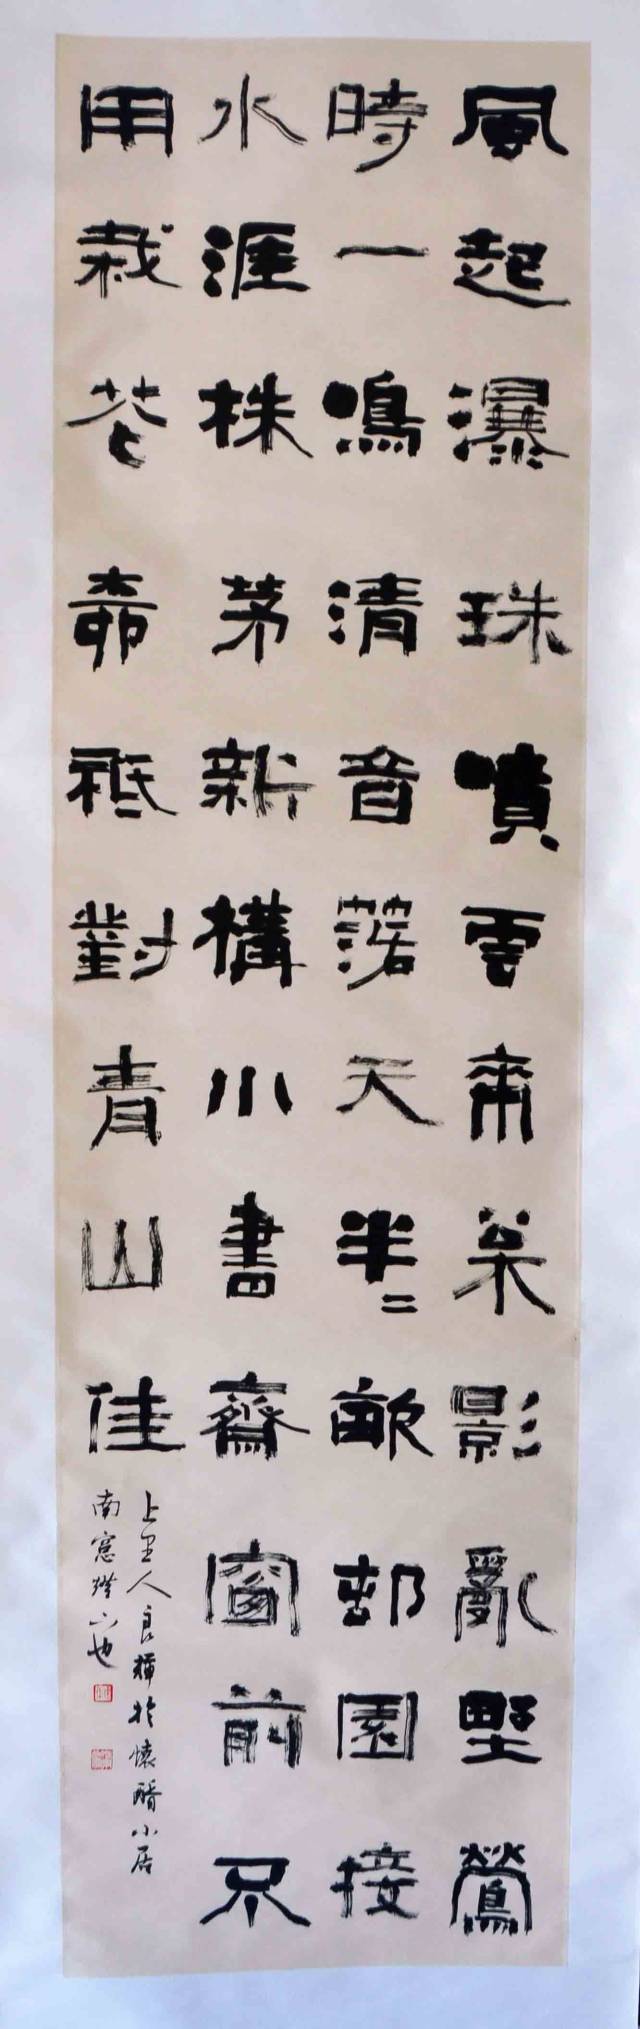 風起瀑珠噴雲來枀影亂野鶯
時一鳴清音落天半二畝邨園接
水涯株茅新構小書齋窗前不
用栽花柳祗對青山佳
上里人良輝於懷小居
南窓燈下也